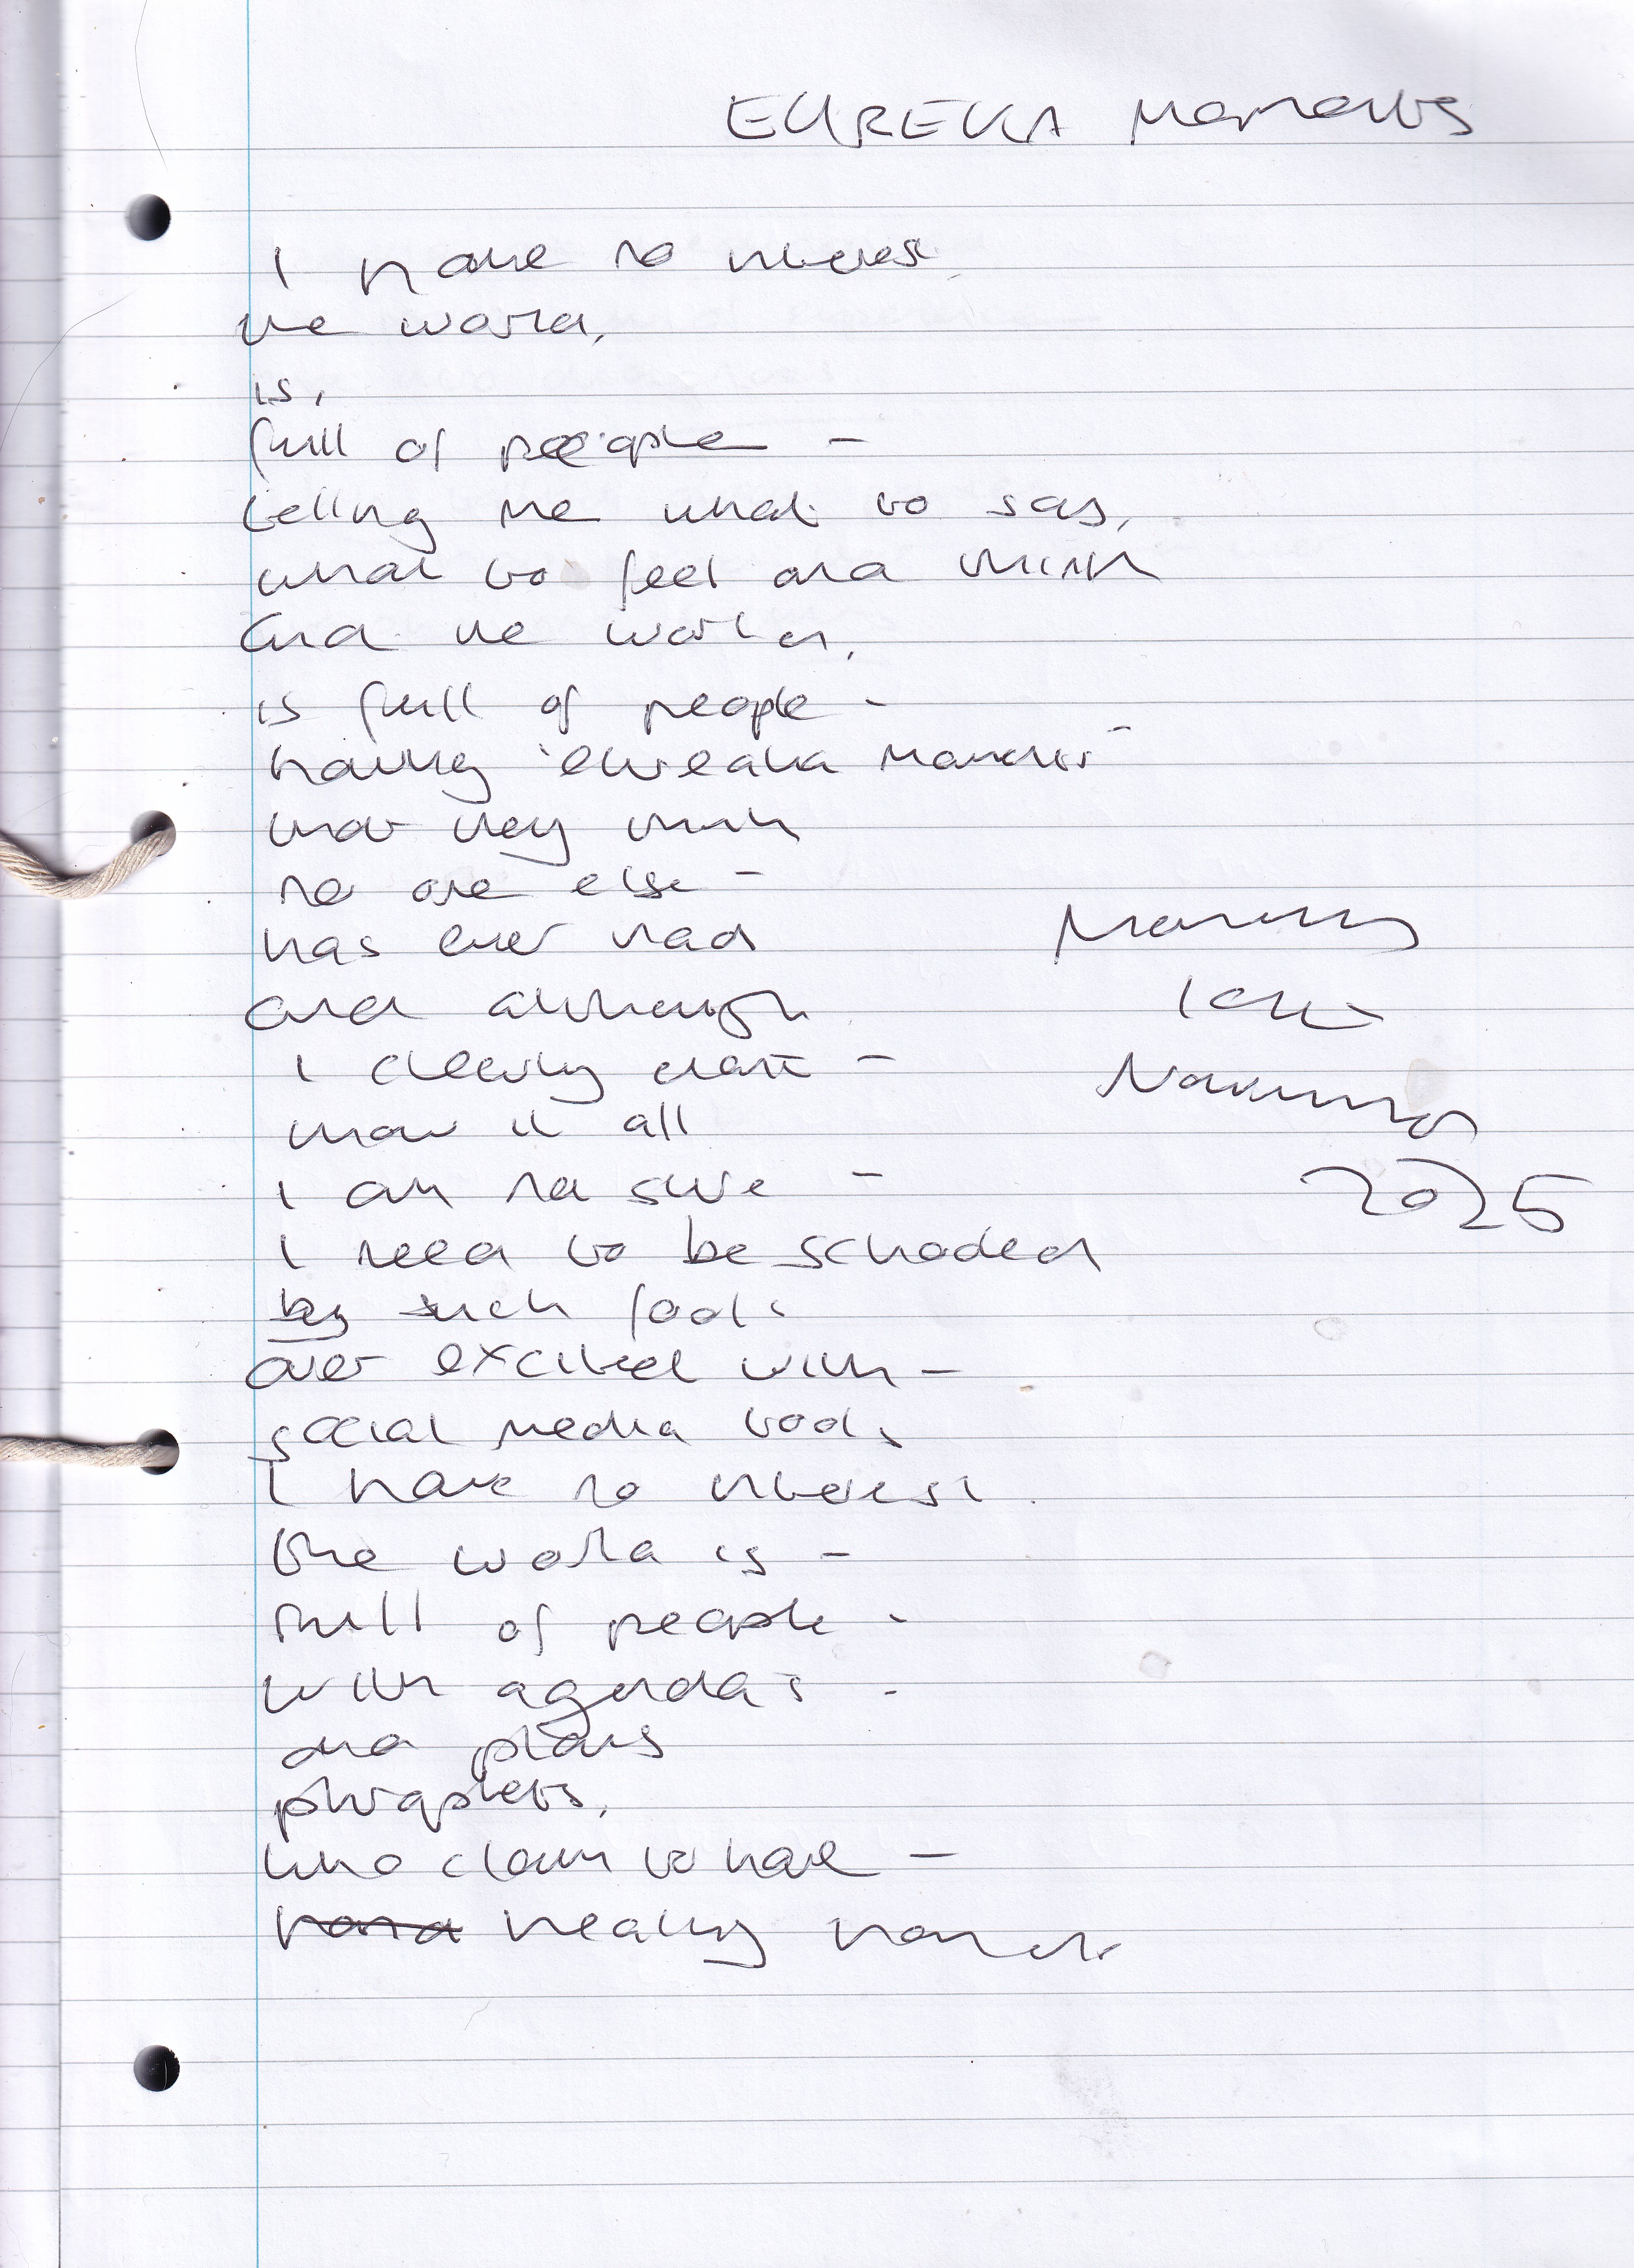 EUREKA Moments
I have no interest
the world,
is,
full of people -
telling me what to say,
what to feel and think
and the world,
is full of people -
having 'eureaka moments'
that they think
no one else -
has ever had
and although
I clearly don't -
know it all
I am not sure -
I need to be schooled
by such fools
over excited with -
social media tools
I have no interest
the world is -
full of people -
with agenda's -
and plans
who claim to have -
healing hands
Monday
10th
November
2025